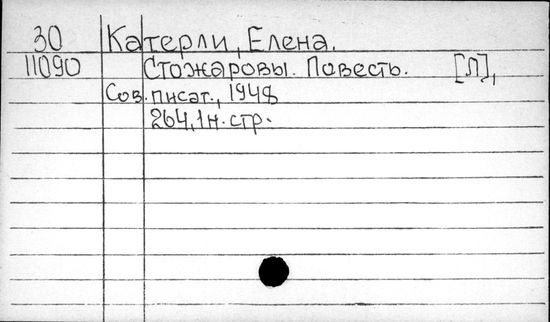 30 Катерли, Елена.
11090 Стожаровы. Повесть. [Л],
Сов. писат., 1948
264,1н. стр.